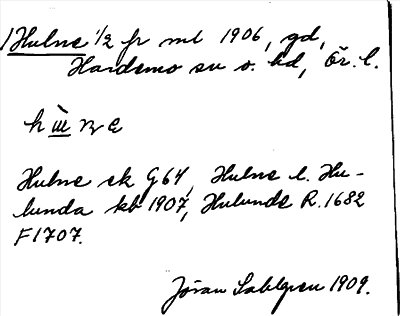 1 Hulne 1/2 fr mtl 1906, gd,
Hardemo sn o. hd, Ör. l.
Hulne ek G64, Hulne l. Hu-
lunda kb 1907, Hulunde R. 1682
F1707.
Jöran Sahlgren 1909.